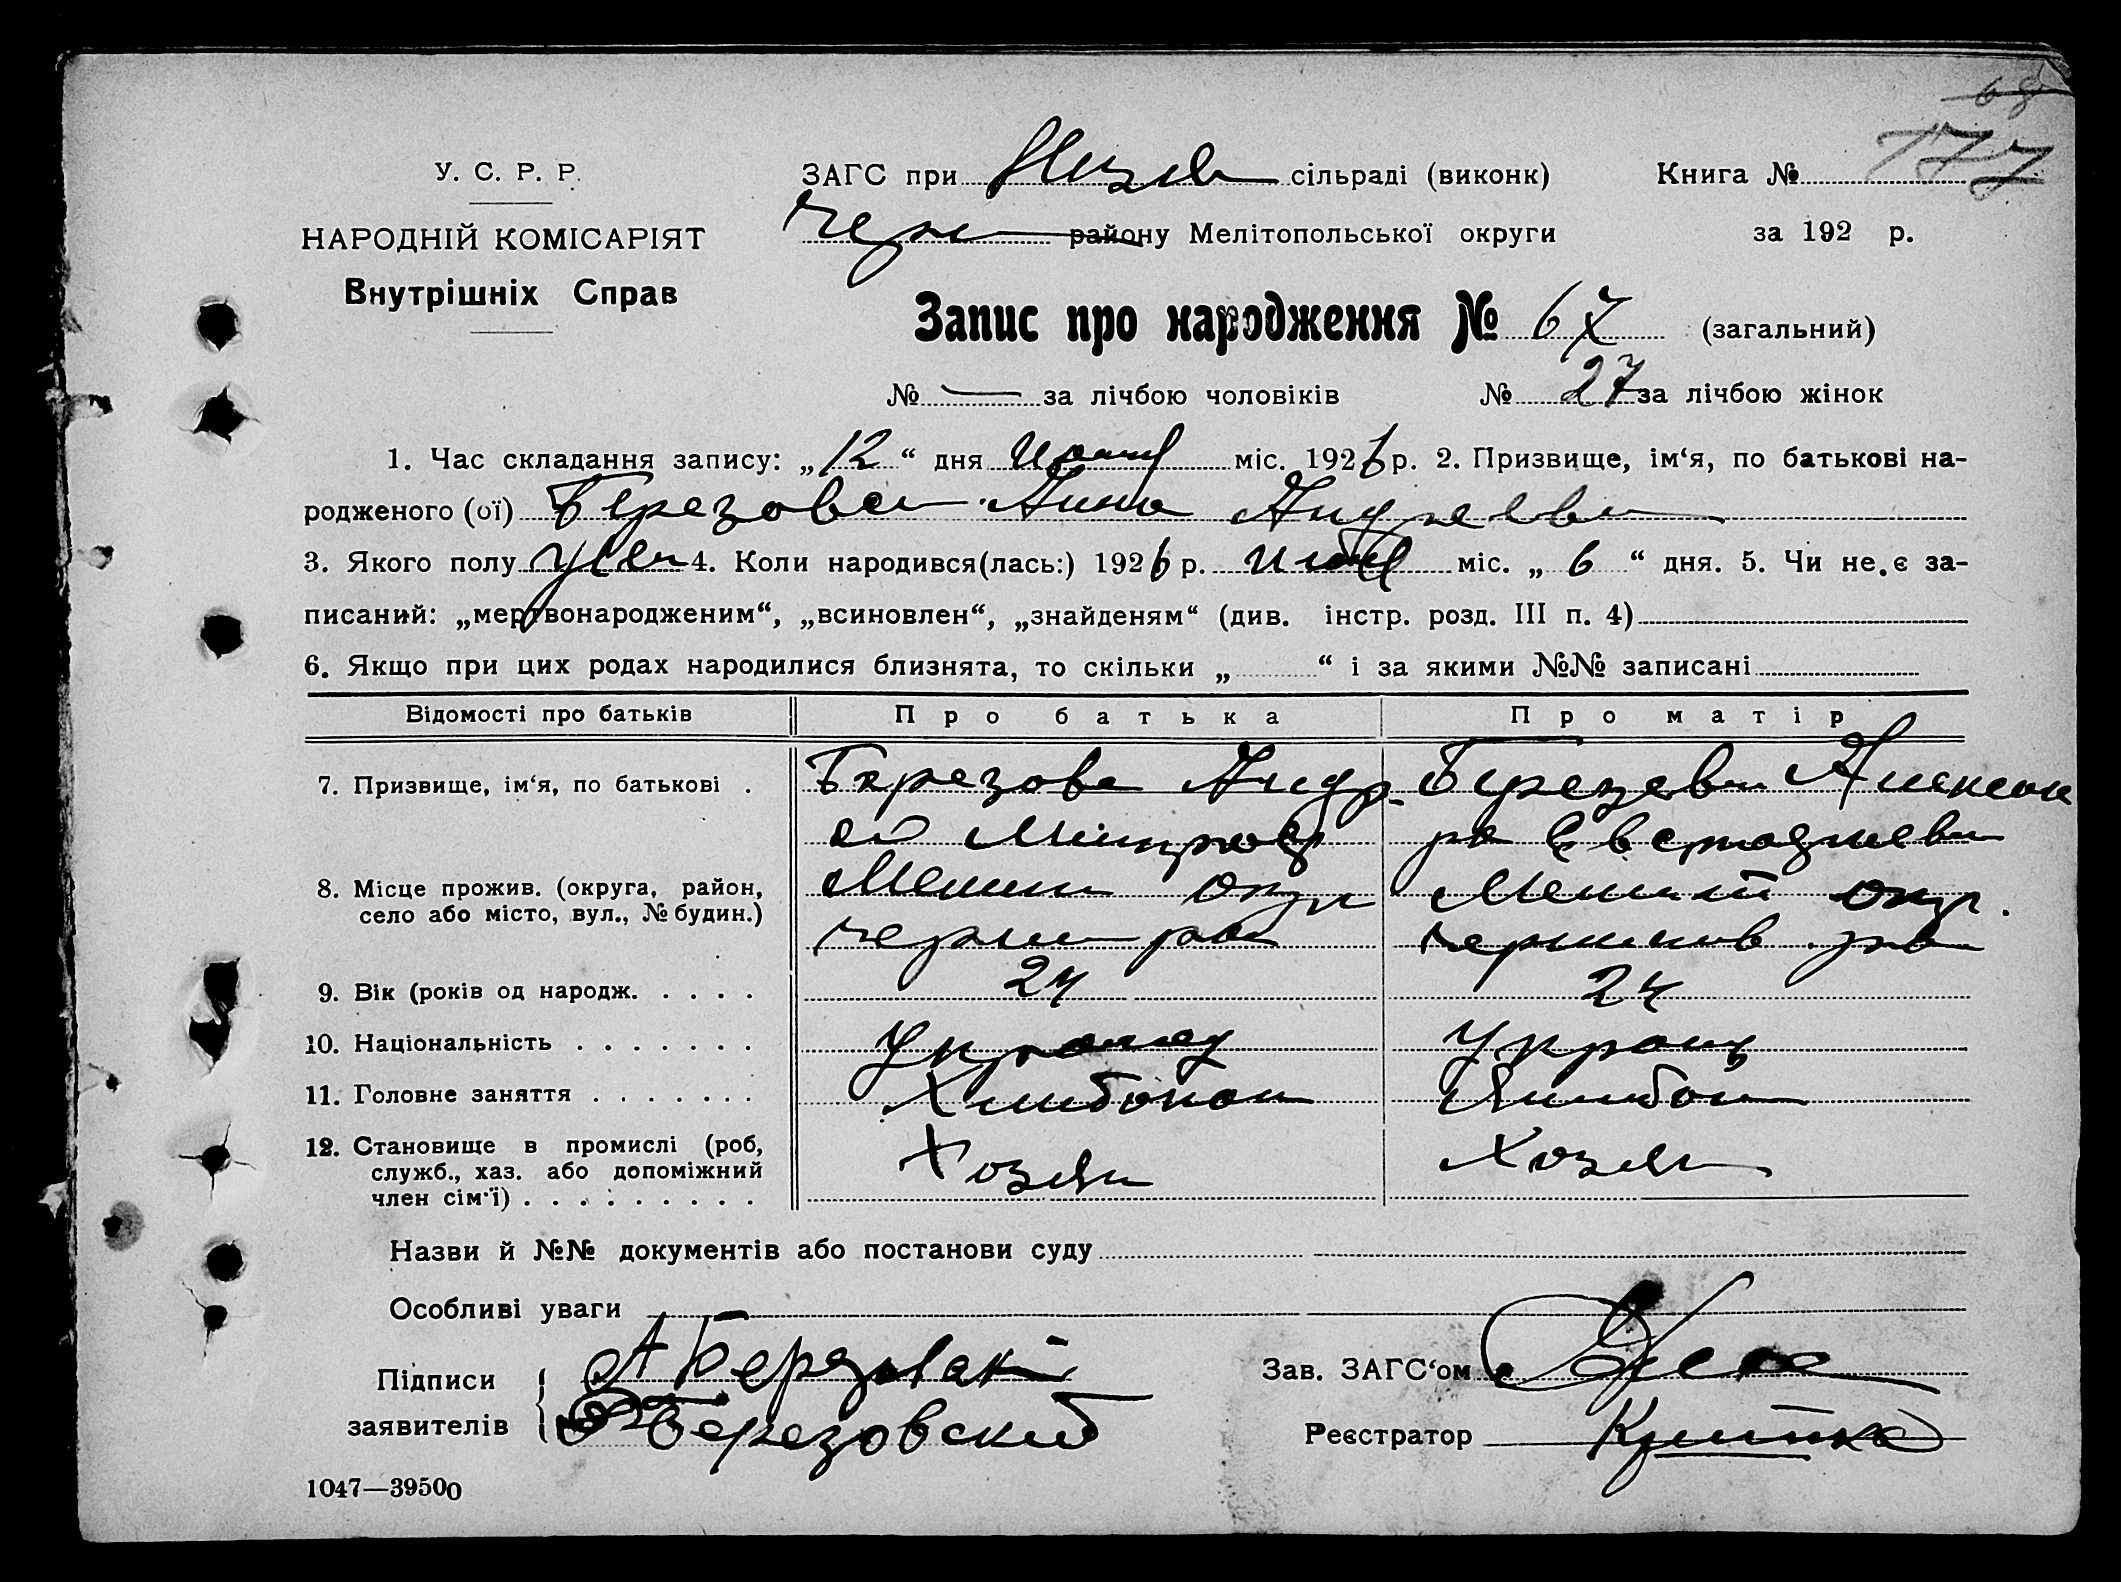 68
177
У. С. Р. Р.
НАРОДНІЙ КОМІСАРІЯТ
Внутрішніх Справ
ЗАГС при сільраді (виконк)
Книга №
району Мелітопольської округи
за 192 р.
Запис про народження № 67 (загальний)
№ — за лічбою чоловіків № 27 за лічбою жінок
1. Час складання запису: „12“ дня міс. 1926 р. 2. Призвище, ім‘я, по батькові на-
родженого (ої) Березовск Анна Андреевн
3. Якого полу жен 4. Коли народився(лась:) 1926 р. міс. „ 6 “ дня. 5. Чи не є за-
писаний: „мертвонародженим“, „всиновлен“, „знайденям“ (див. інстр. розд. III п. 4)
6. Якщо при цих родах народилися близнята, то скільки „ “ і за якими №№ записані
Відомості про батьків Про батька Про матір
7. Призвище, ім‘я, по батькові . Березовс Андр- Березовск Александ
ей ра Евстафиевн
8. Місце прожив. (округа, район, округ окр.
село або місто, вул., № будин.) рай
9. Вік (років од народж. . . . . 24 24
10. Національність . . . . . . . Украинц Украинц
11. Головне заняття . . . . . . . Хлибопаш
12. Становище в промислі (роб,
служб., хаз. або допоміжний Хозяин Хозяин
член сім‘ї) . . . . . . . . .
Назви й №№ документів або постанови суду
Особливі уваги
Підписи АБерезовский Зав. ЗАГС‘ом
заявителів Березовский Реєстратор
1047—39500